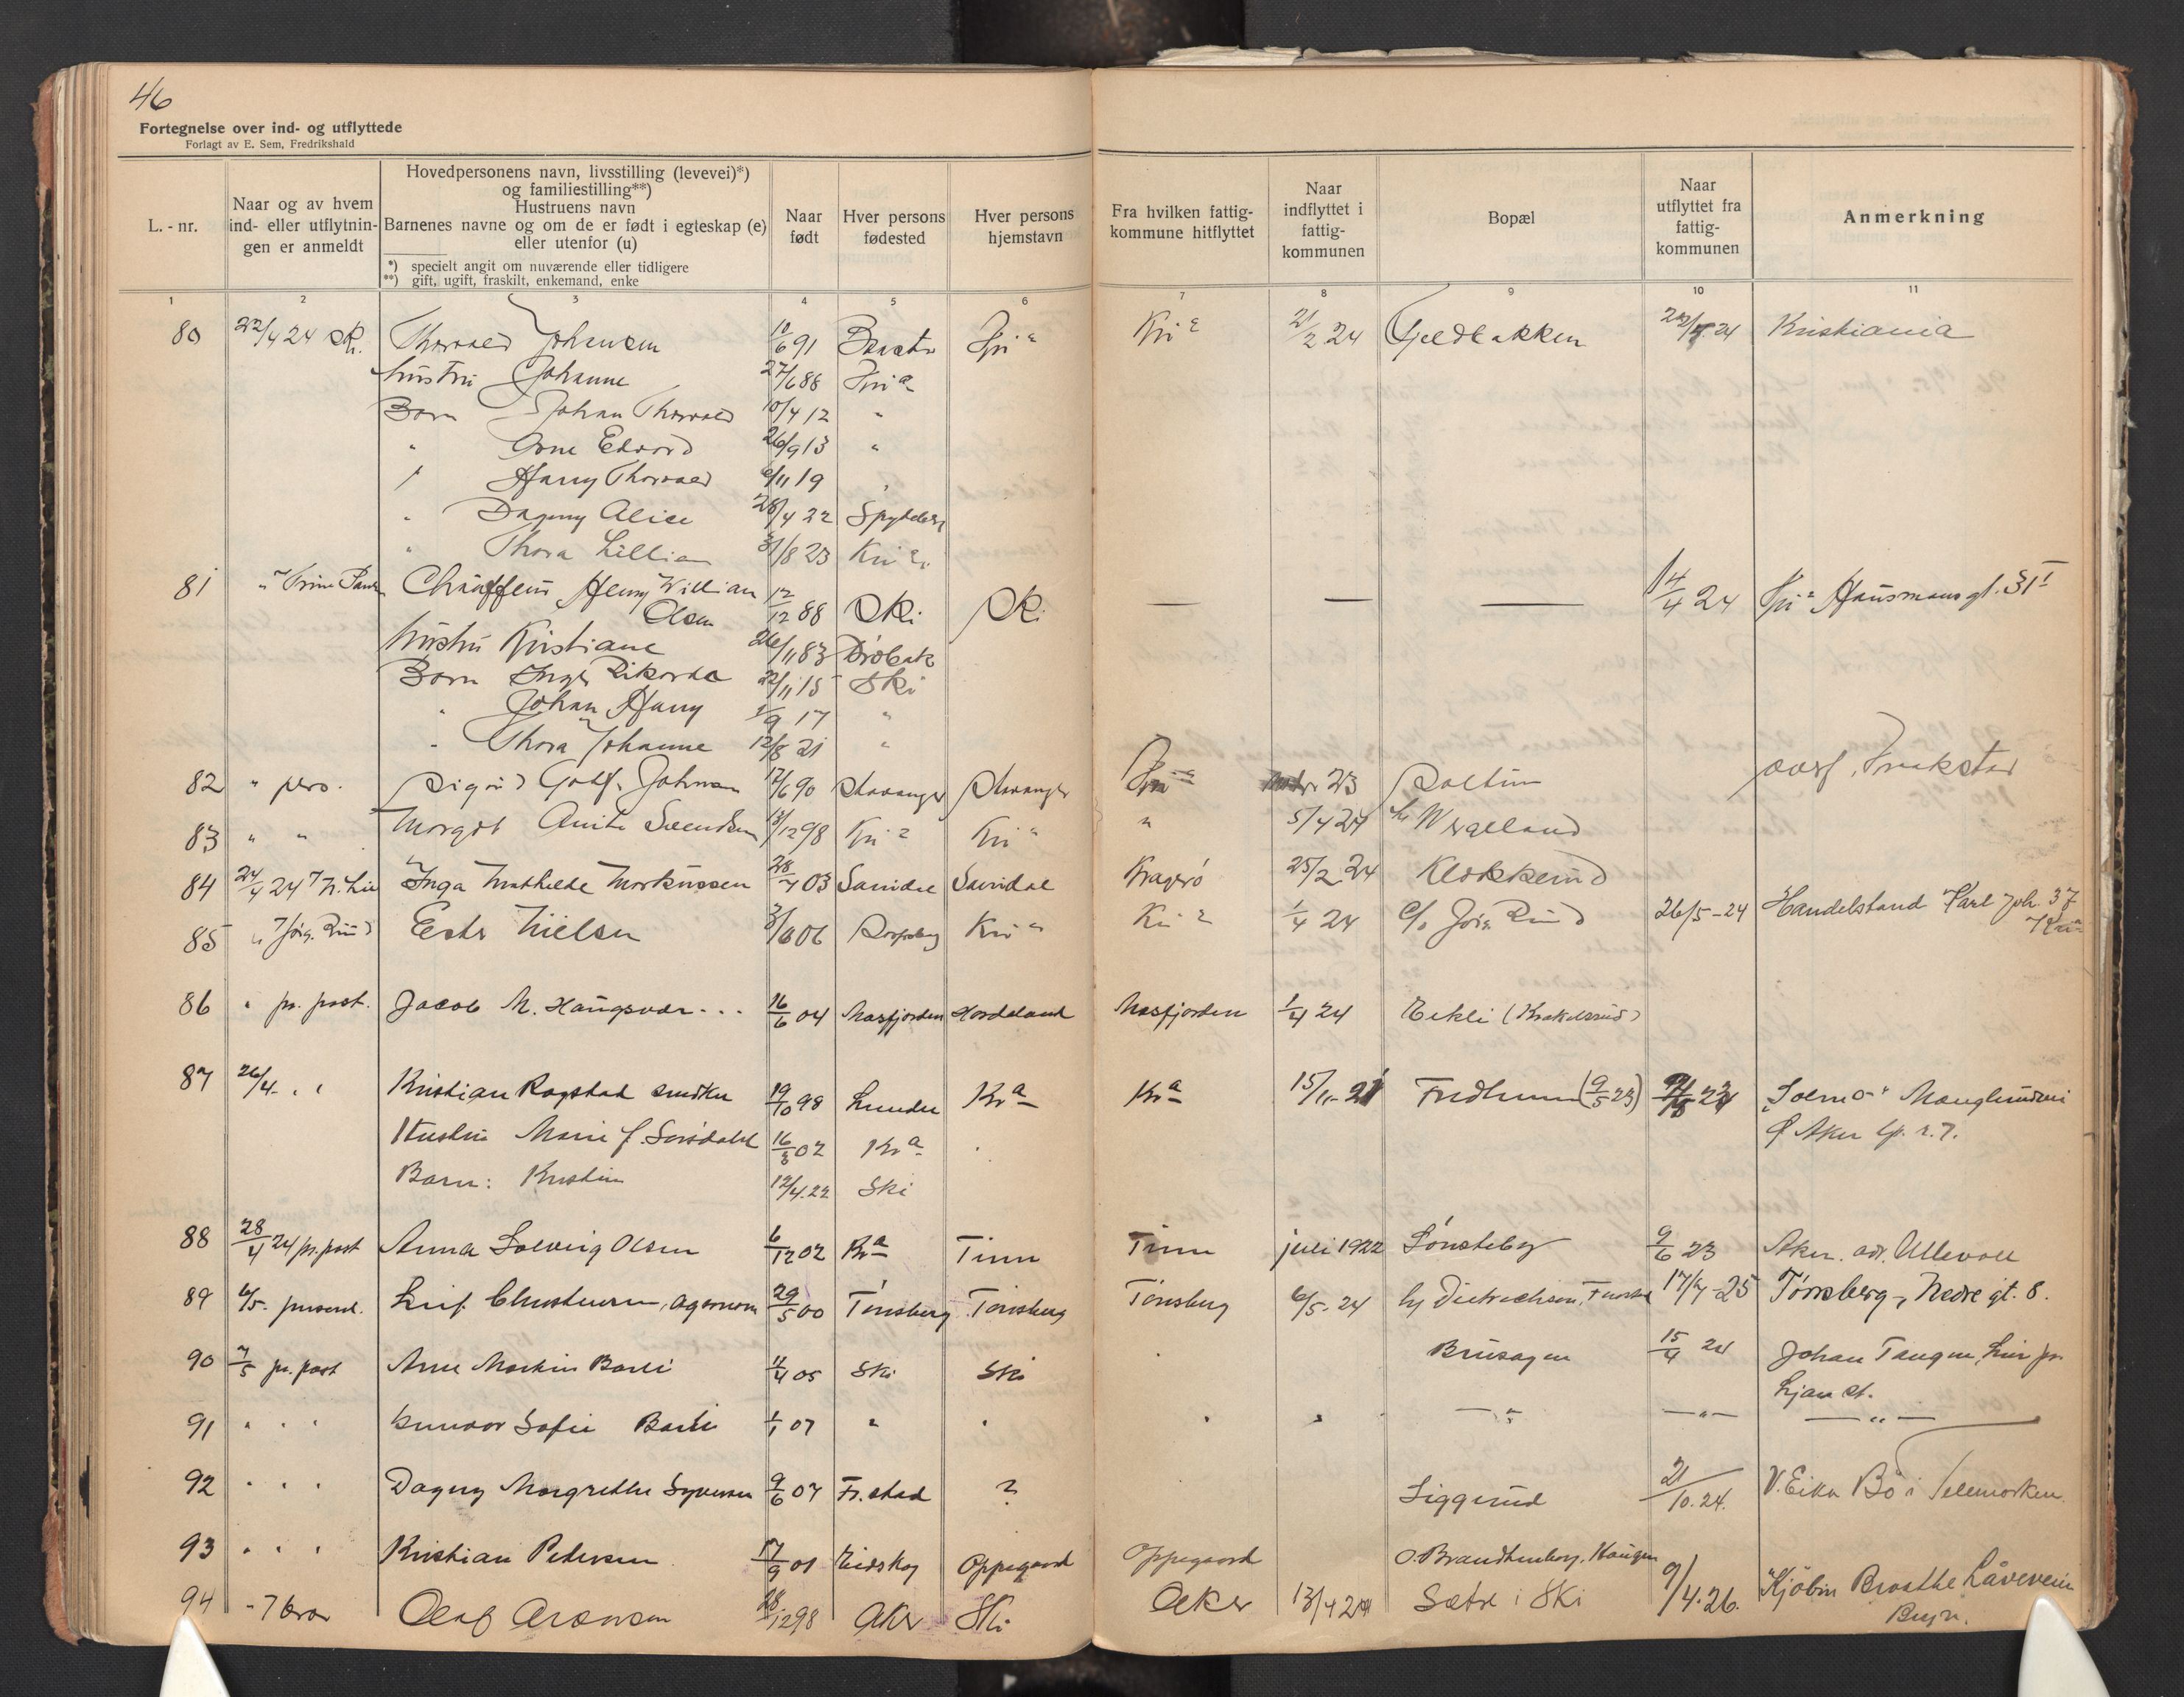 46
Fortegnelse over ind- og utflyttede
Forlagt av E. Sem, Fredrikshald
L.-nr.
Naar og av hvem
ind- eller utflytnin-
gen er anmeldt
Hovedpersonens navn, livsstilling (levevei)*)
og familiestilling**)
Hustruens navn
Barnenes navne og om de er født i egteskap (e)
eller utenfor (u)
*) specielt angit om nuværende eller tidligere
**) gift, ugift, fraskilt, enkemand, enke
Naar
født
Hver persons
fødested
Hver persons
hjemstavn
Fra hvilken fattig-
kommune hitflyttet
Naar
indflyttet i
fattig-
kommunen
Bopæl
Naar
utflyttet fra
fattig-
kommunen
Anmerkning
1 2 3 4 5 6 7 8 9 10 11
80 22/4 24 Thorvald Johansen 10/6 91 Kria 21/2 24 Gjedbakken 24 Kristiania
Hustru Johanne 27/6 88 Kria
Barn Johan Thorvald 10/4 12 "
" Arne Edvard 26/9 13 "
" Harry Thorvald 6/11 19 "
" Dagny Alice 28/4 22 Spydeberg
" Thora Lillian 31/8 23 Kria
81 " Chauffeur Henry Willian 12/12 88 Ski Ski — — — 14/4 24 Kria Hausmansgt. 31 I
Olsen
Hustru Kristiane 26/11 83 Drøbak
Barn Inger Rikarda 22/11 15 Ski
" Johan Harry 1/9 17 "
" Thora Johanne 12/8 21 "
82 " pers. Sigrid Johnsen 17/6 90 Stavanger Stavanger Kria 23
83 " " Margot Anita Svendsen 13/12 98 Kria Kria " 5/4 24 Wergelland
84 24/4 24 Inga Mathilde Markussen 28/7 03 Sannidal Sannidal Kragerø 25/2 24 Klokkerud
85 " Jørg. Rud Ester Nielsen 3/6 06 Sarpsborg Kria Kria 1/4 24 c/o Jørg. Rud 26/5-24 Handelstand Karl Joh. 37
Kria
86 " pr. post. Jacob M. Haugsvær... 16/6 04 Masfjorden Hordaland Masfjorden 1/4 24 Eikli (Krakelsrud)
87 26/4. " " Kristian Rogstad snedker 19/10 98 Lunder Kra Kra 15/11-21 Fredheim (9/5 23) "Solmo" Manglerudvei
Ø Aker
Hustru Marie f. Sørsdahl 16/8 02 Kra
Barn: Kristin 12/4.22 Ski
88 28/4 24 pr. post Anna Solveig Olsen 6/12 02 Kra Tinn Tinn juli 1922 Sønsteby 9/6 23 Aker. adr. Ullevaal
89 6/5. personl. Leif Christensen, agronom 29/5 00 Tønsberg Tønsberg Tønsberg 6/5-24 hj Dietrichson, 17/7-25 Tønsberg, Nedre gt. 8.
90 7/5 pr. post Arne Martin Barli 4/4 05 Ski Ski Brusagen 15/4 24 Johan Tangen, Lien pr.
Ljan st.
91 " " " Gunvor Sofie Barli 1/1 07 " " " " — " — — " — — " —
92 " " " Dagny Margrethe Syversen 9/6 07 Fr.stad ? Siggerud 21/10.24. V. Eika Bø i Telemarken.
93 " " " Kristian Pedersen 17/9 01 Eidskog Oppegaard Oppegaard O. Brandtenborg, Haugen
94 " Olaf Aronsen 28/12 98 Aker Ski Aker 13/4 24 Sætre i Ski 9/4.26. Kjøbm Braathe Låveveien
Bryn.